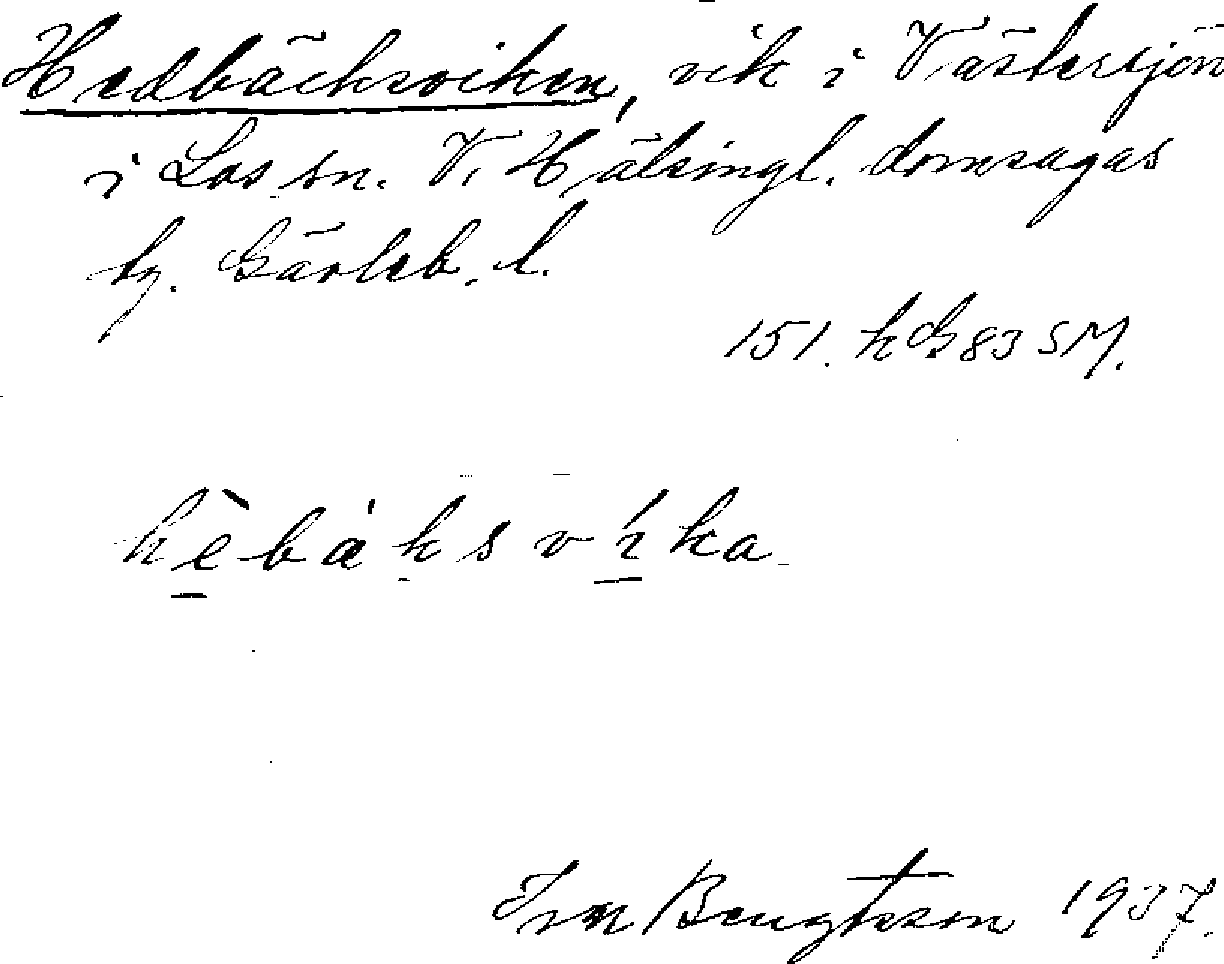 Hedbäcksviken, vik i Västersjön
i Los sn. V. Hälsingl. domsagas
tg. Gävleb. l.
151. h G 83 SM.
hèbäksvíka
Bengtsson 1937.